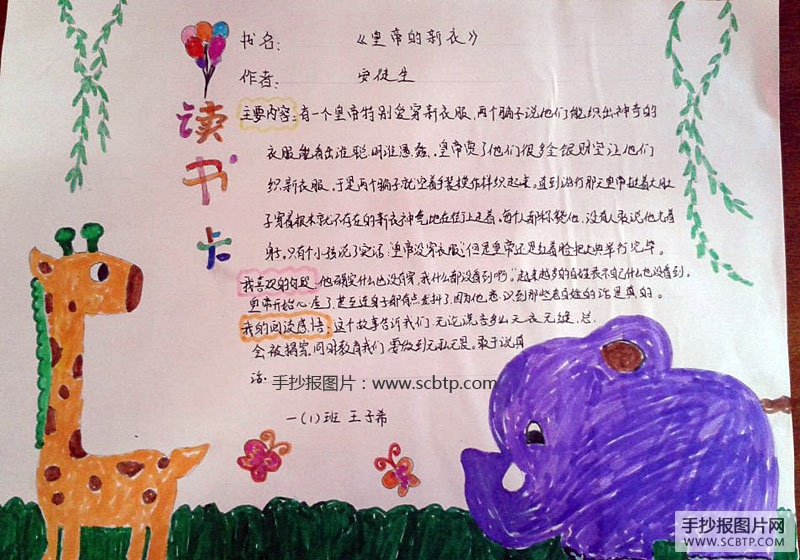 读书卡
书名：《皇帝的新衣》
作者：安徒生
主要内容：有一个皇帝特别爱穿新衣服，两个骗子说他们能织出神奇的
衣服能看出谁聪明谁愚蠢。皇帝赏了他们很多金银财宝让他们
织新衣服，于是两个骗子就空着手装模作样织起来。直到游行那天皇帝挺着大肚
子穿着根本就不存在的新衣神气地在街上走着。每个人都称赞他，没有人敢说他光着
身。只有个小孩说了实话："皇帝没穿衣服"但是皇帝还是红着脸把大典举行完毕。
我喜欢的句段：他确实什么也没有穿，我什么都没看到啊。"越来越多的百姓表示自己什么也没看到。
皇帝开始心虚了，甚至连身子都有点发抖了，因为他意识到那些老百姓的话是真的。
我的阅读感悟：这个故事告诉我们，无论谎言多么天衣无缝，总
会被揭穿，同时教育我们要做到无私无畏。敢于说真
话。
手抄报图片：www.scbtp.com
一(1)班 王子希
手抄报图片网
WWW.SCBTP.COM